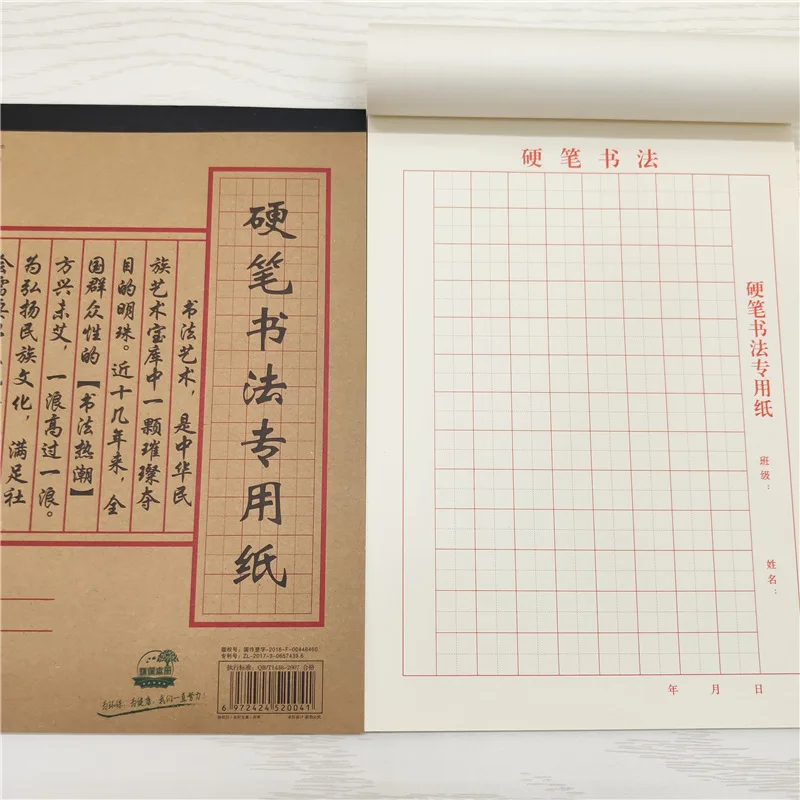 硬笔书法专用纸
书法艺术，是中华民
族艺术宝库中一颗璀璨夺
目的明珠。近十几年来，全
国群众性的【书法热潮】
方兴未艾，一浪高过一浪。
为弘扬民族文化，满足社
版权号：国作登字-2018-F-00448460
专利号：ZL-2017-3-0657439.6
执行标准：QB/T1438-2007 合格
6 972424 520041
为环保，为健康，我们一直努力！
硬笔书法
硬笔书法专用纸
班级：
姓名：
年 月 日